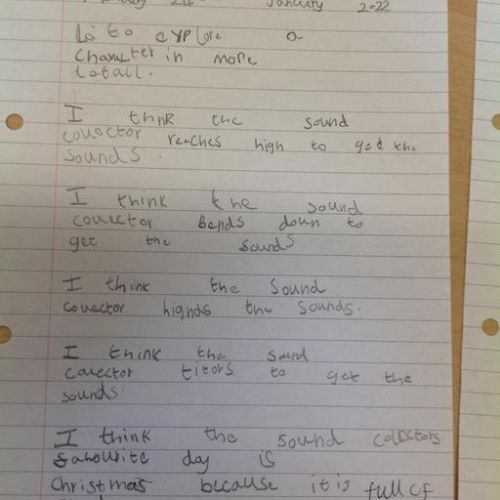 January 2022
Lo to explore a
character in more
detail.
I think the sound
collector reaches high to get the
sounds.
I think the sound
collector bends down to
get the sounds.
I think the sound
collector highds the sounds.
I think the sound
collector titors to get the
sounds.
I think the sound collectors
favourite day is
christmas because it is full of